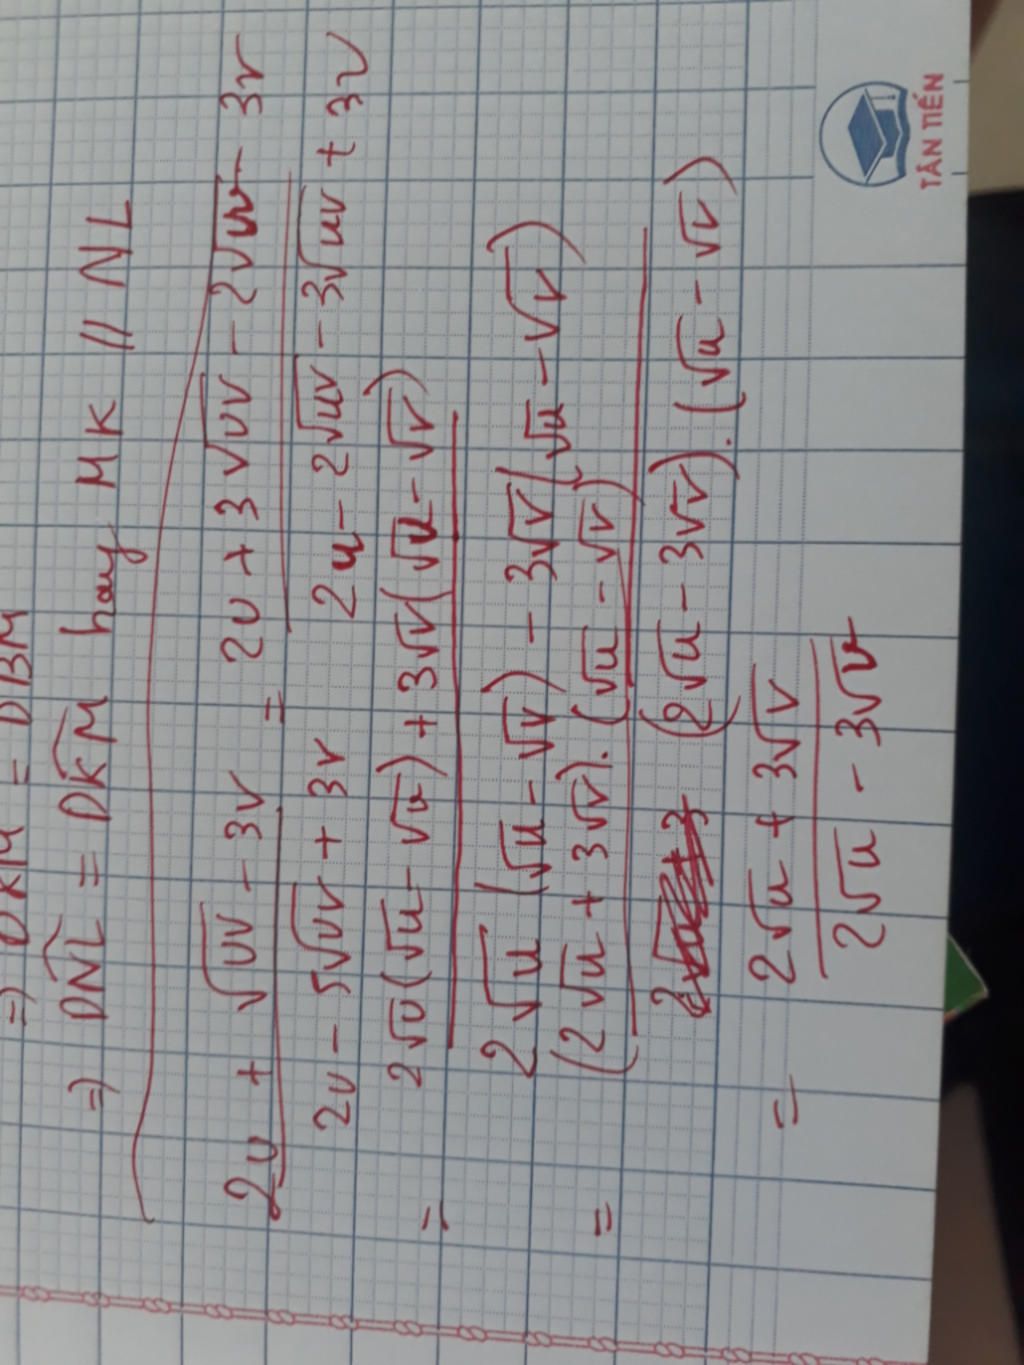 => DKM = DBM
=> DNL = DKM hay MK // NL
2u + √uv - 3v = 2u + 3√uv - 2√uv - 3v
2u - 5√uv + 3v 2u - 2√uv - 3√uv + 3v
= 2√u(√u - √v) + 3√v(√u - √v)
2√u (√u - √v) - 3√v(√u - √v)
= (2√u + 3√v).(√u - √v)
(2√u - 3√v).(√u - √v)
= 2√u + 3√v
2√u - 3√v
TÂN TIẾN